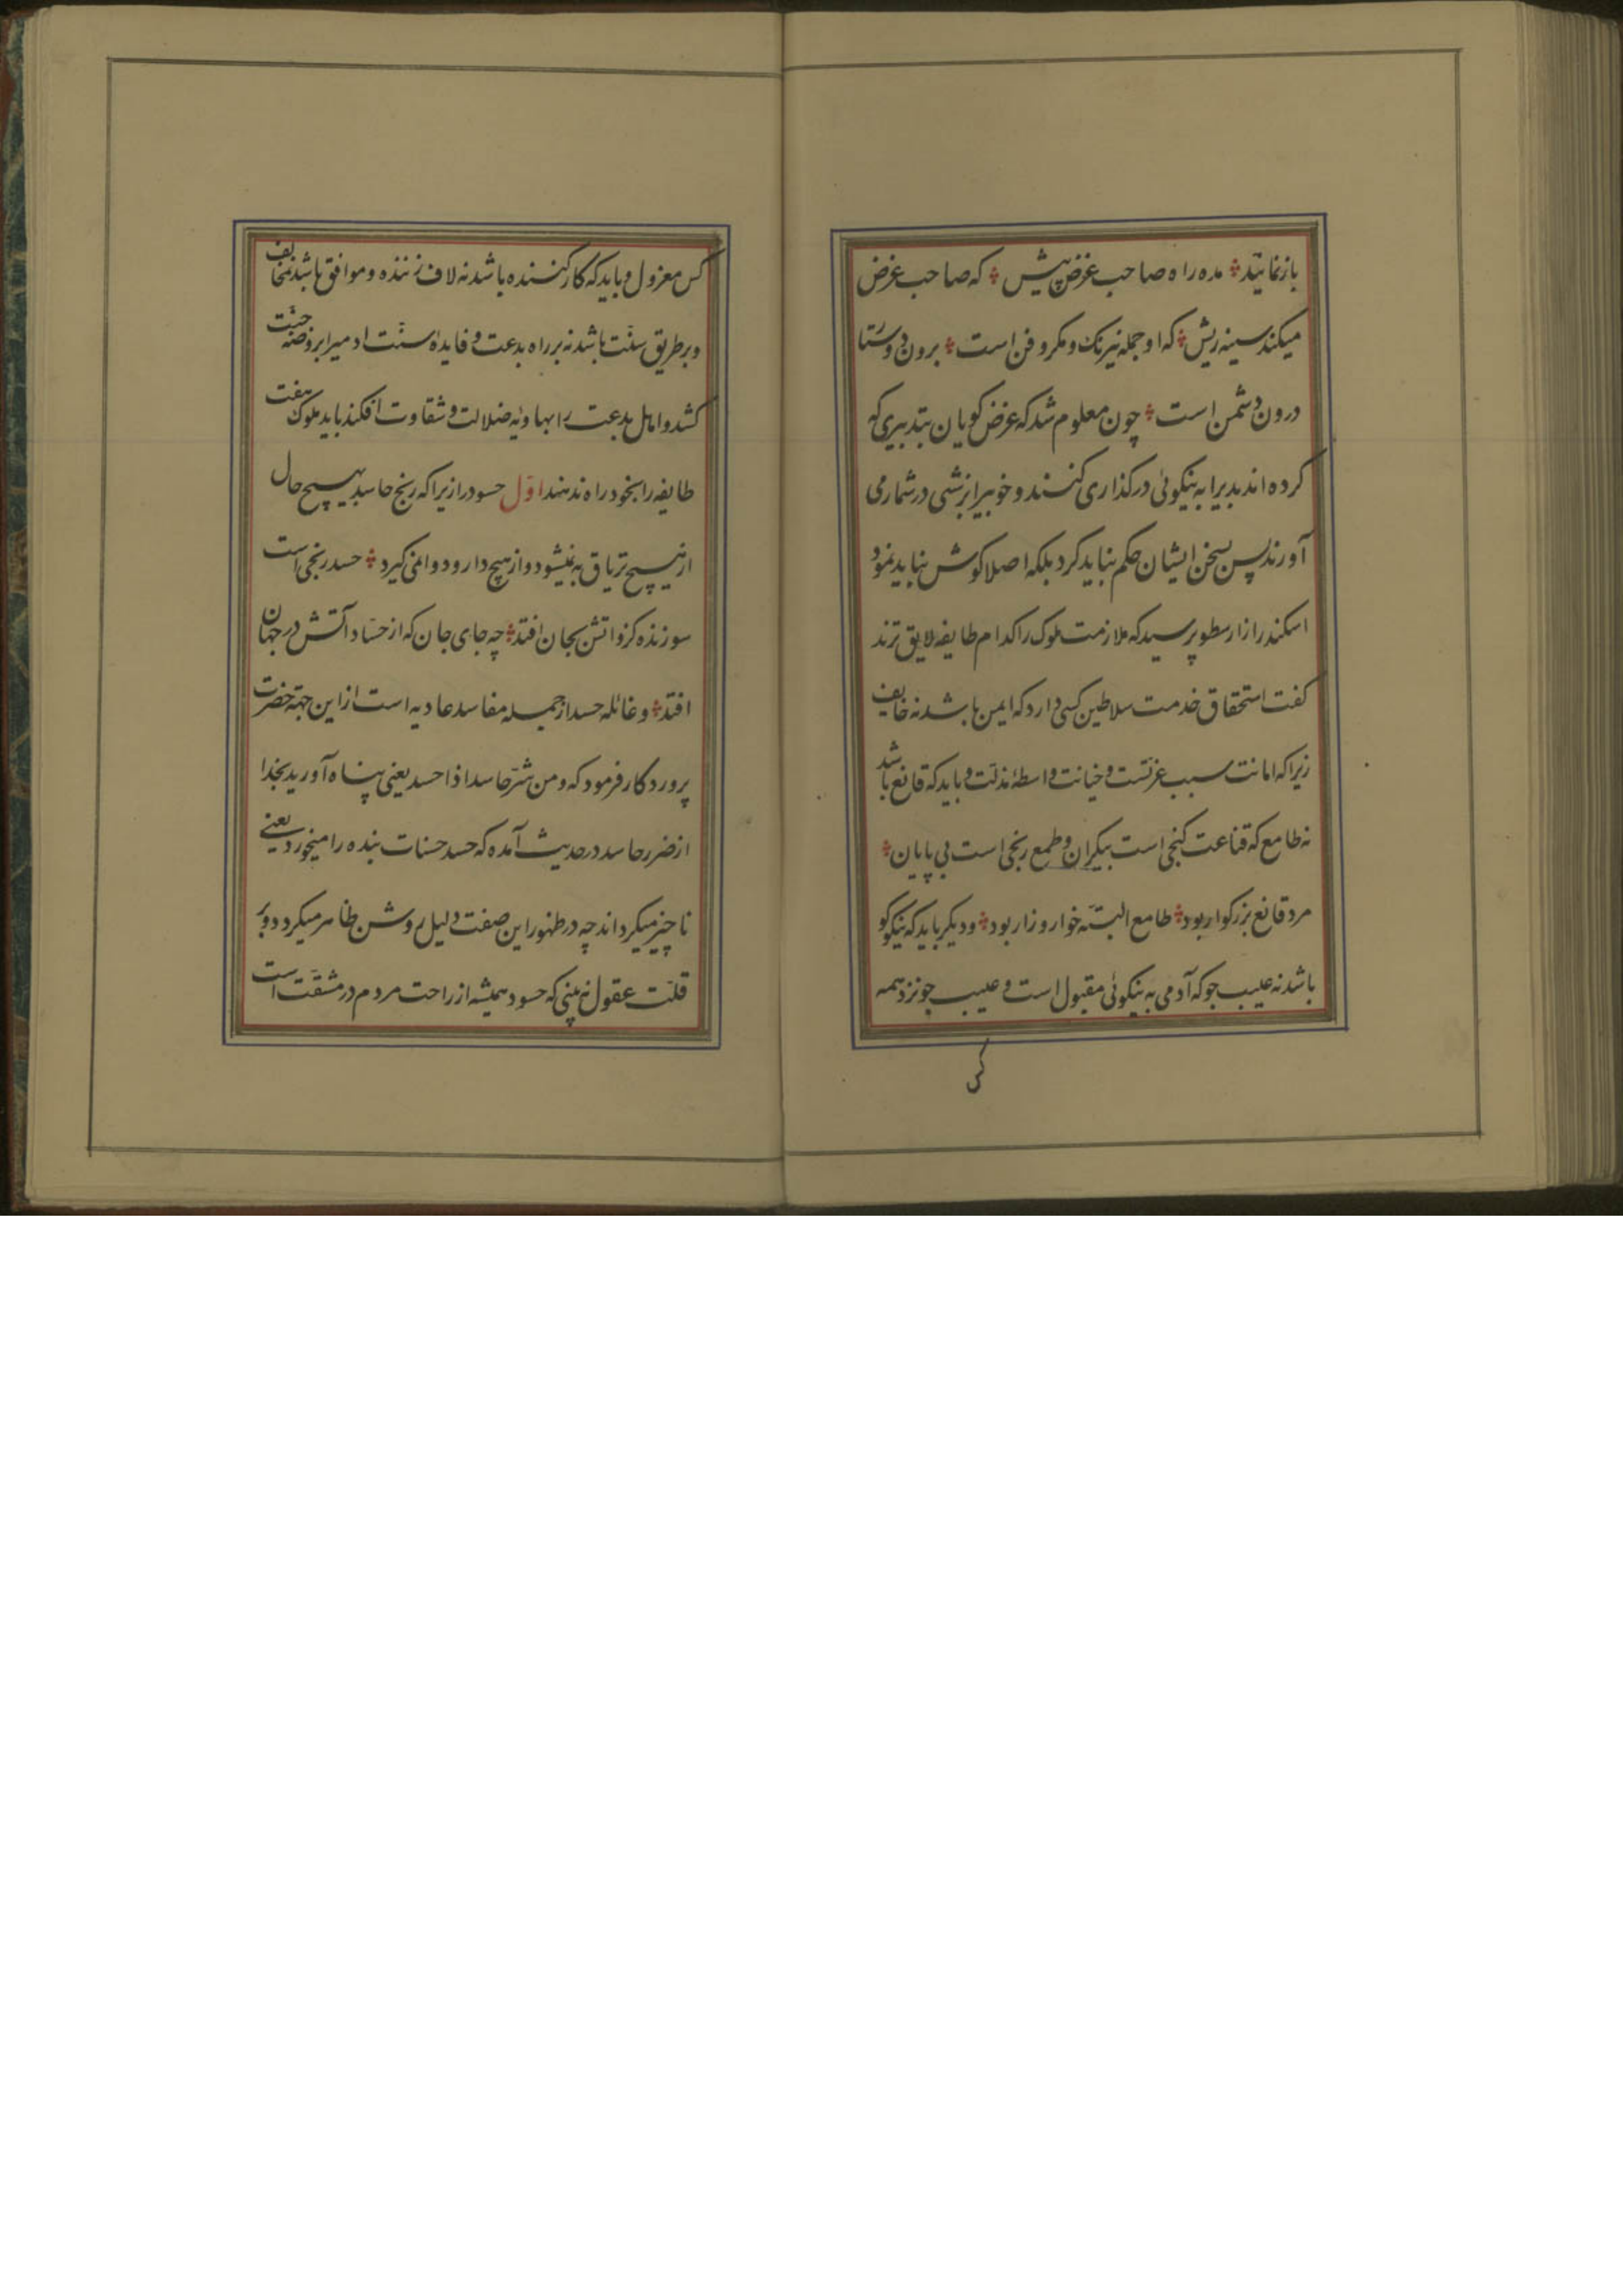 بازنمایند ؞ مده راه صاحب غرض پیش ؞ که صاحب غرض
میکند سینه ریش ؞ که او جمله نیرنک و مکر و فن است ؞ برون دوستا
درون دشمن است ؞ چون معلوم شد که غرض کویان بتدبیری که
کرده اند بدیرا به نیکوئی در کذاری کنند و خوبیرا بزشتی در شمار می
آورند پس بسخن ایشان حکم نباید کرد بلکه اصلا کوش نباید نمود
اسکندر از ارسطو پرسید که ملازمت ملوک را کدام طایفه لایق ترند
کفت استحقاق خدمت سلاطین کسی دارد که ایمن باشد نه خایف
زیرا که امانت سبب عزتست و خیانت واسطهٔ مذلت و باید که قانع باشد
نه طامع که قناعت کنجی است بیکران و طمع رنجی است بی پایان ؞
مرد قانع بزرکوار بود ؞ طامع البته خوار و زار بود ؞ و دیکر باید که نیکو کو
باشد نه عیب جو که آدمی به نیکوئی مقبول است و عیب جو نزد همه
کس
کس معزول و باید که کار کننده باشد نه لاف زننده و موافق باشد نه مخالف
و بر طریق سنّت باشد نه بر راه بدعت و فایدهٔ سنّت ادمیرا بروضه جنّت
کشد و اهل بدعت را بهاویه ضلالت و شقاوت افکند باید ملوک هفت
طایفه را بخود راه ندهند اوّل حسود را زیرا که رنج حاسد بهیچ حال
از هیچ تریاق به نمیشود و از هیچ دارو دوا نمی کیرد ؞ حسد رنجی است
سوزنده کزو اتش بجان افتد ؞ چه جای جان که از حسّاد آتش در جهان
افتد ؞ و غائله حسد از جمله مفاسد عادیه است از این جهة حضرت
پروردکار فرمود که و من شرّ حاسد اذا حسد یعنی پناه آورید بخدا
از ضرر حاسد در حدیث آمده که حسد حسنات بنده را میخورد یعنی
ناچیز میکرداند چه در ظهور این صفت دلیل روشن ظاهر میکردد بر
قلّت عقول نه بینی که حسود همیشه از راحت مردم در مشقّت است